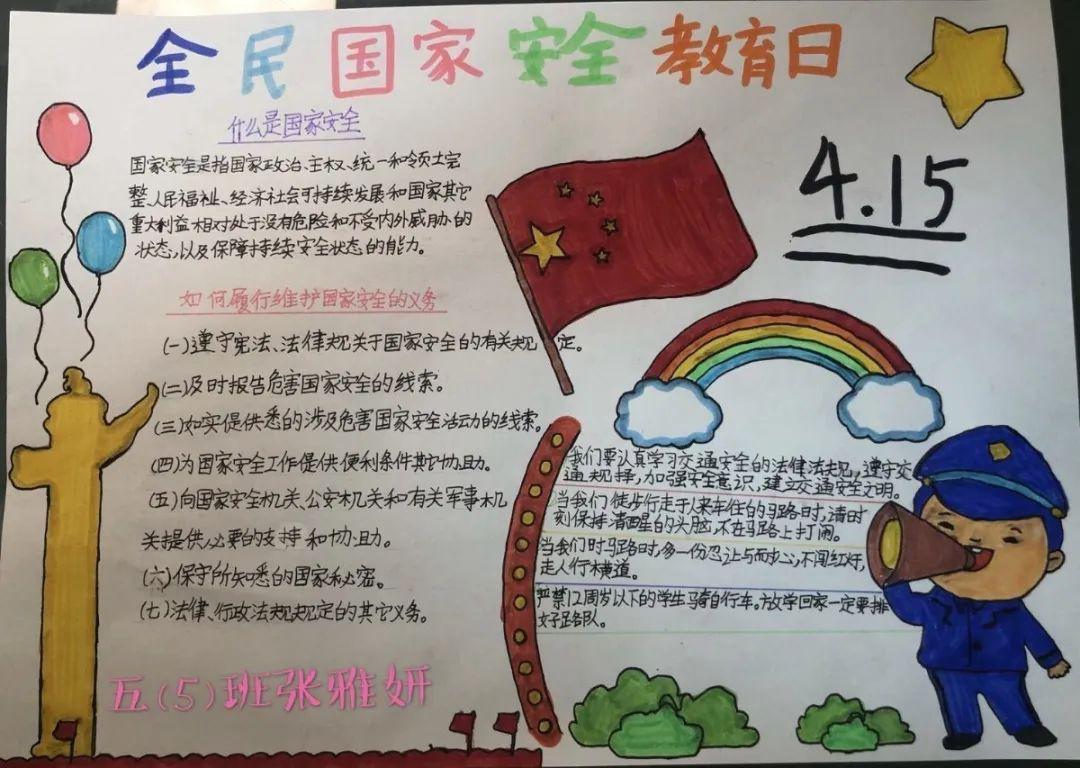 全民国家安全教育日
4.15
什么是国家安全
国家安全是指国家政治、主权、统一和领土完
整、人民福祉、经济社会可持续发展和国家其它
重大利益相对处于没有危险和不受内外威胁的
状态,以及保障持续安全状态的能力。
如何履行维护国家安全的义务
(一)遵守宪法、法律规关于国家安全的有关规定。
(二)及时报告危害国家安全的线索。
(三)如实提供悉的涉及危害国家安全活动的线索。
(四)为国家安全工作提供便利条件其它协助。
(五)向国家安全机关、公安机关和有关军事机
关提供必要的支持和协助。
(六)保守所知悉的国家秘密。
(七)法律、行政法规规定的其它义务。
五(5)班张雅妍
我们要认真学习交通安全的法律法规,遵守交
通规择,加强安全意识,建立交通安全文明。
当我们徒步行走于人来车住的马路时,请时
刻保持清醒的头脑,不在马路上打闹。
当我们时马路时,多一份忍让与而心,不闯红灯,
走人行横道。
严禁12周岁以下的学生骑自行车。放学回家一定要排
好路队。